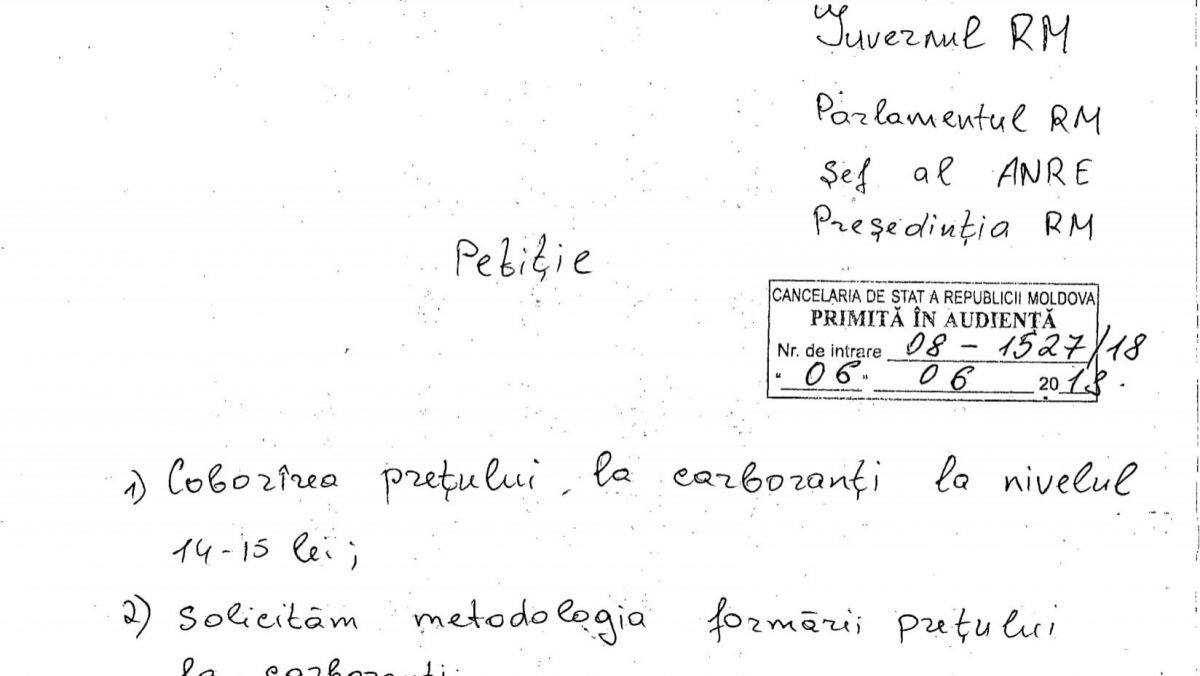 Guvernul RM
Parlamentul RM
Șef al ANRE
Președinția RM
Petiție
CANCELARIA DE STAT A REPUBLICII MOLDOVA
PRIMITĂ ÎN AUDIENȚĂ
Nr. de intrare 08 - 1527/18
"06" 06 2018.
1) Coborîrea prețului, la carboranți la nivelul
14-15 lei;
2) Solicităm metodologia formării prețului
la carboranți;